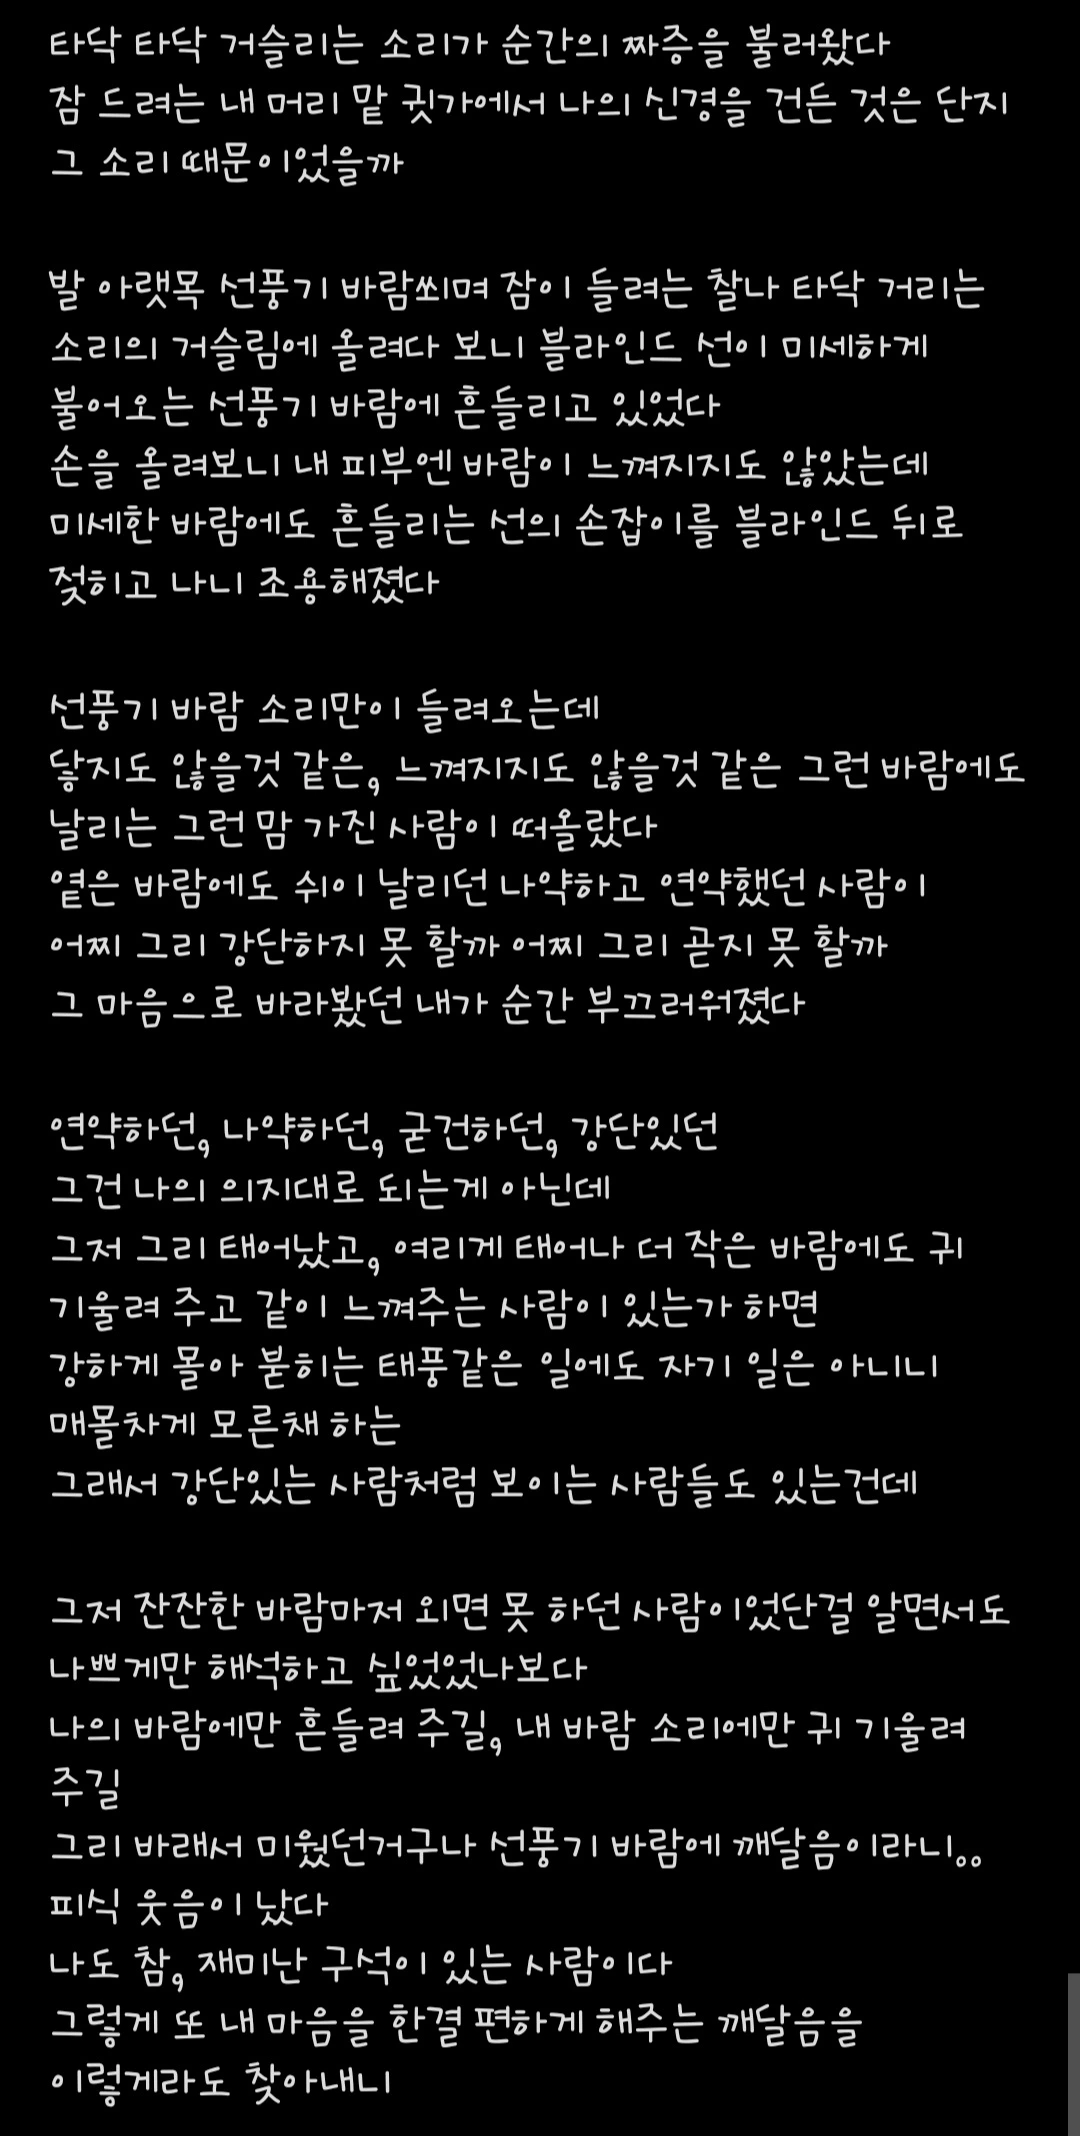 타닥 타닥 거슬리는 소리가 순간의 짜증을 불러왔다
잠 드려는 내 머리 맡 귓가에서 나의 신경을 건든 것은 단지
그 소리 때문이었을까
발 아랫목 선풍기 바람쐬며 잠이 들려는 찰나 타닥 거리는
소리의 거슬림에 올려다 보니 블라인드 선이 미세하게
불어오는 선풍기 바람에 흔들리고 있었다
손을 올려보니 내 피부엔 바람이 느껴지지도 않았는데
미세한 바람에도 흔들리는 선의 손잡이를 블라인드 뒤로
젖히고 나니 조용해졌다
선풍기 바람 소리만이 들려오는데
닿지도 않을것 같은, 느껴지지도 않을것 같은 그런 바람에도
날리는 그런 맘 가진 사람이 떠올랐다
옅은 바람에도 쉬이 날리던 나약하고 연약했던 사람이
어찌 그리 강단하지 못 할까 어찌 그리 곧지 못 할까
그 마음으로 바라봤던 내가 순간 부끄러워졌다
연약하던, 나약하던, 굳건하던, 강단있던
그건 나의 의지대로 되는게 아닌데
그저 그리 태어났고, 여리게 태어나 더 작은 바람에도 귀
기울려 주고 같이 느껴주는 사람이 있는가 하면
강하게 몰아 붇히는 태풍같은 일에도 자기 일은 아니니
매몰차게 모른채 하는
그래서 강단있는 사람처럼 보이는 사람들도 있는건데
그저 잔잔한 바람마저 외면 못 하던 사람이었단걸 알면서도
나쁘게만 해석하고 싶었었나보다
나의 바람에만 흔들려 주길, 내 바람 소리에만 귀 기울려
주길
그리 바래서 미웠던거구나 선풍기 바람에 깨달음이라니..
피식 웃음이 났다
나도 참, 재미난 구석이 있는 사람이다
그렇게 또 내 마음을 한결 편하게 해주는 깨달음을
이렇게라도 찾아내니